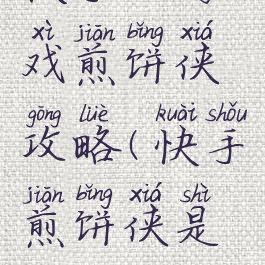 xì jiān bǐng xiá
戏煎饼侠
gōng lüè kuài shǒu
攻略(快手
jiān bǐng xiá shì
煎饼侠是